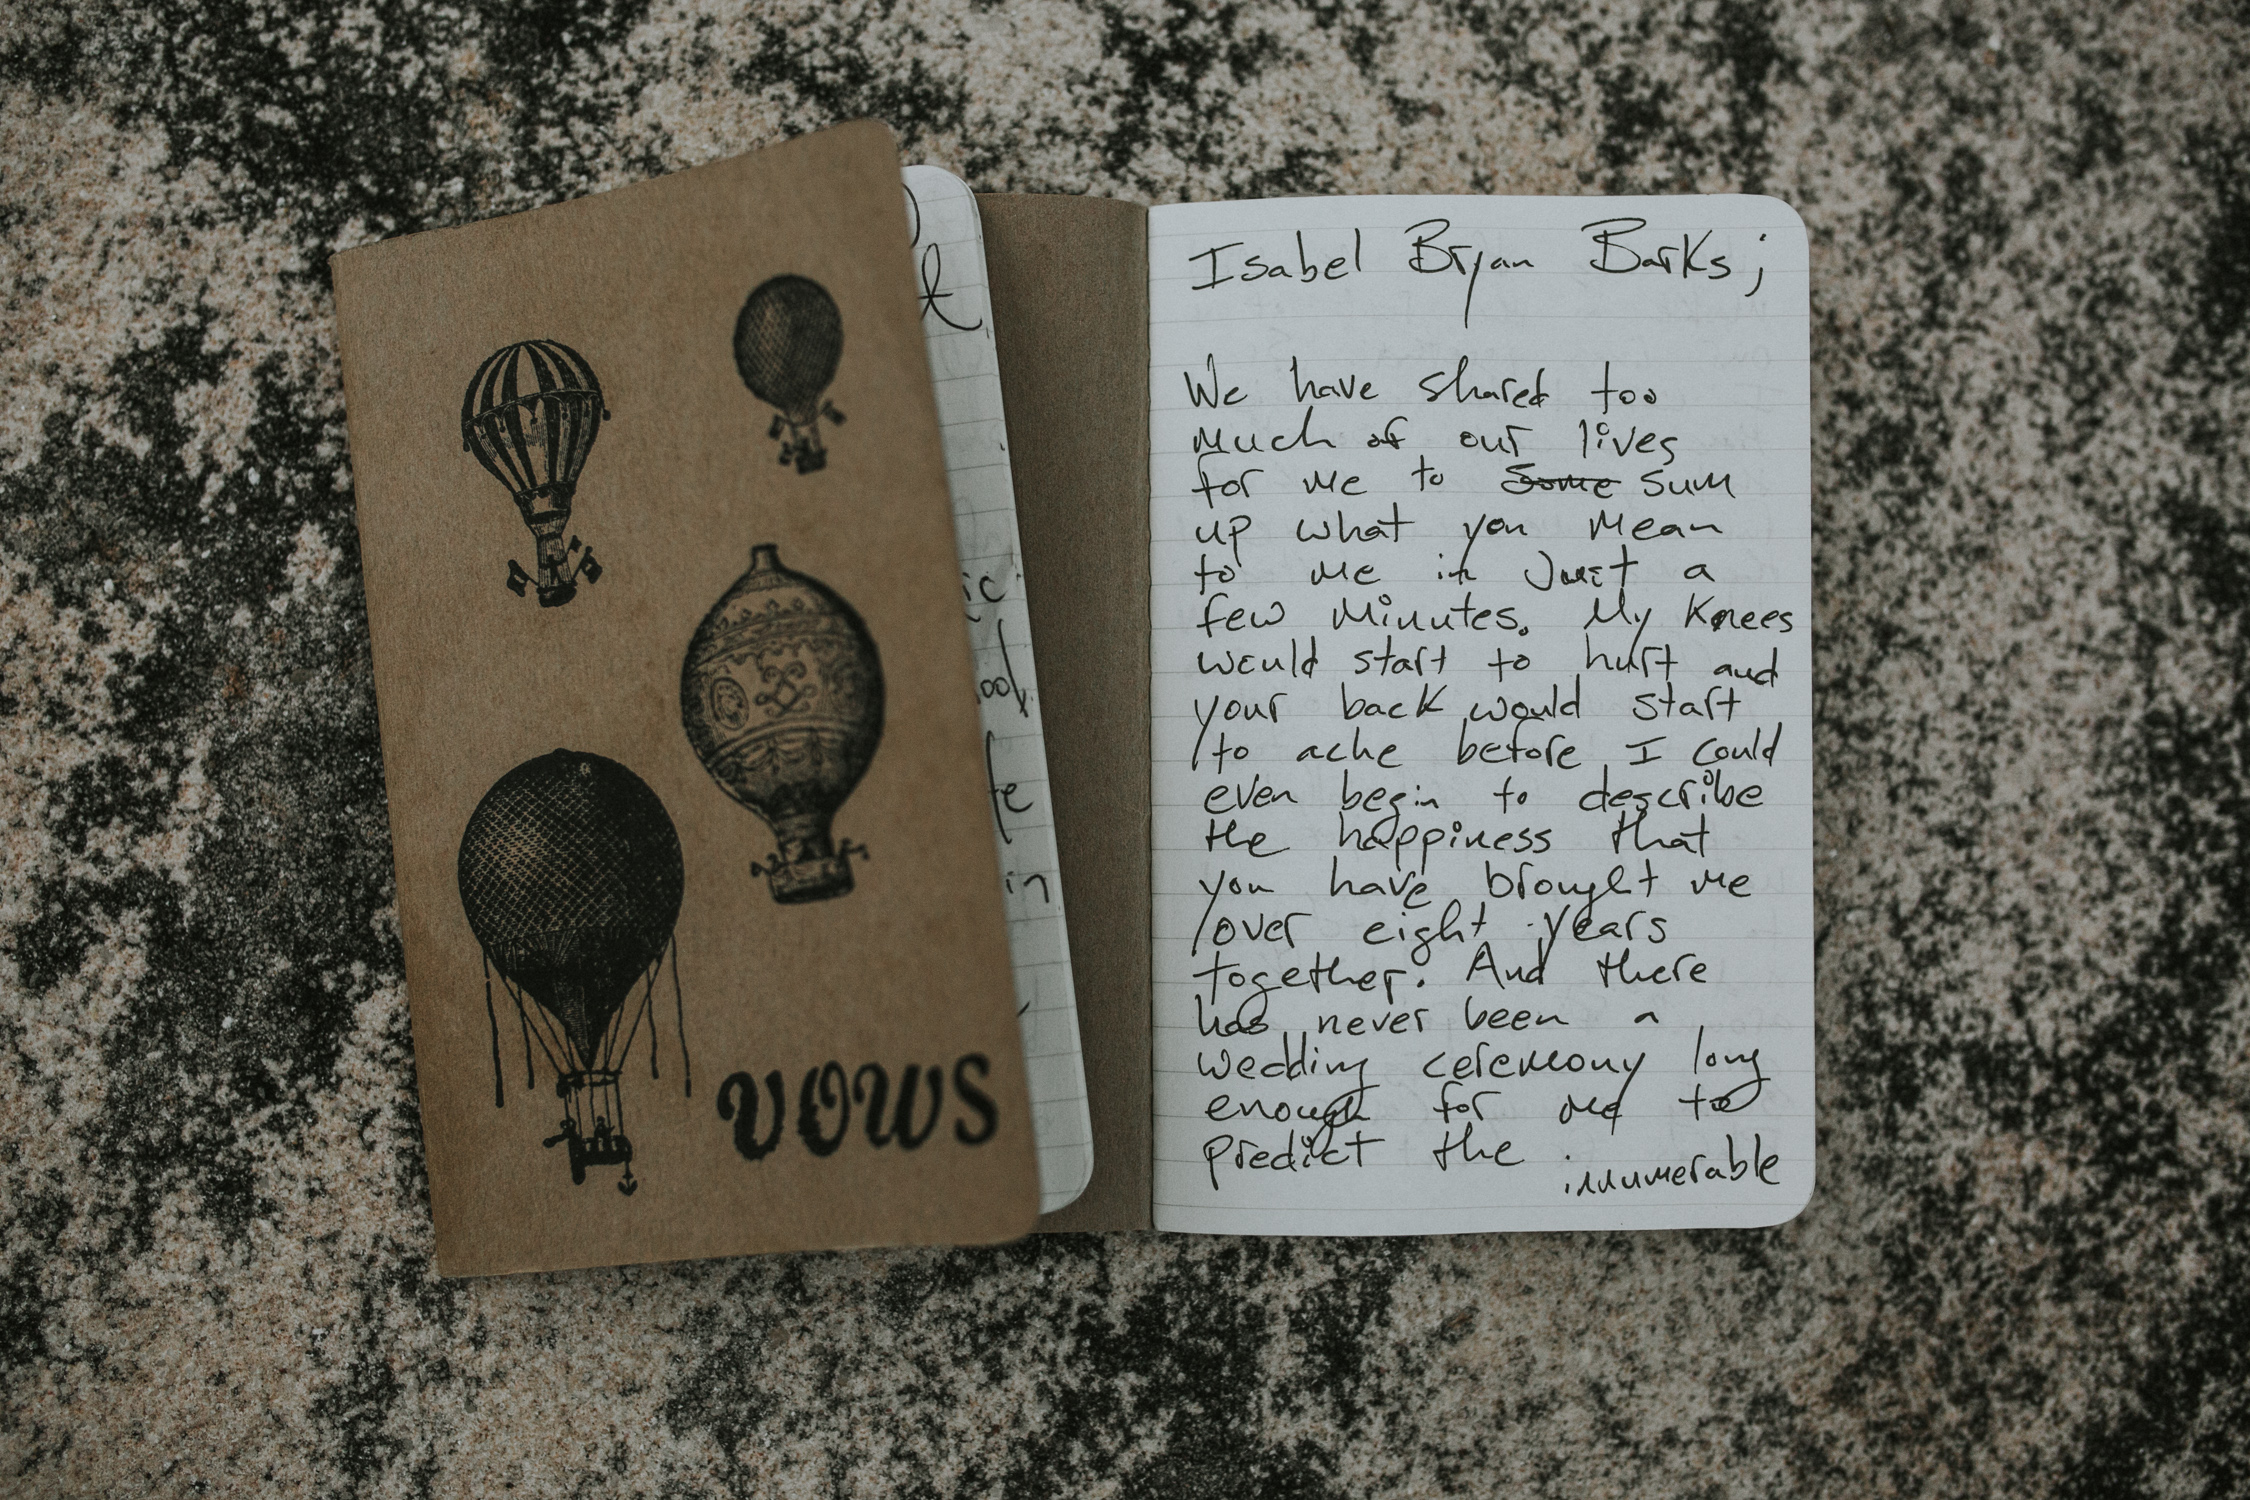 VOWS
ic
ool
fe
in
Isabel Bryan Barks;
We have shared too
much of our lives
for me to ~~some~~ sum
up what you mean
to me in Just a
few minutes. My knees
would start to hurt and
your back would start
to ache before I could
even begin to describe
the happiness that
you have brought me
over eight years
together. And there
has never been a
wedding ceremony long
enough for me to
predict the innumerable